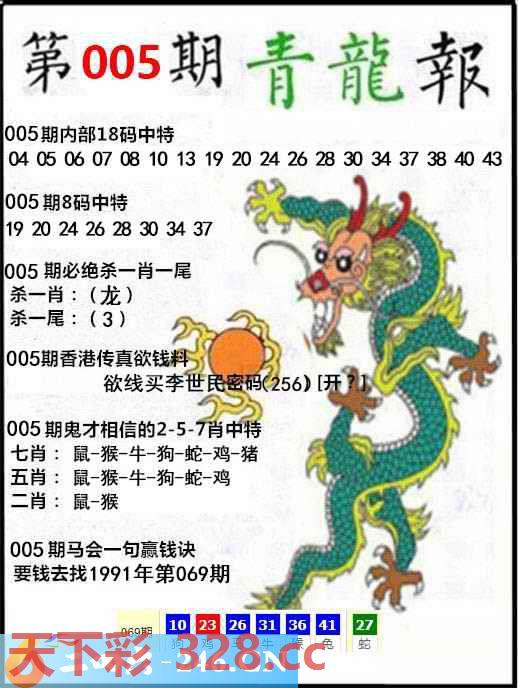 第005期青龍報
005期内部18码中特
04 05 06 07 08 10 13 19 20 24 26 28 30 34 37 38 40 43
005期8码中特
19 20 24 26 28 30 34 37
005 期必绝杀一肖一尾
杀一肖：（龙）
杀一尾：（3）
005期香港传真欲钱料
欲线买李世民密码(256) [开?]
005期鬼才相信的2-5-7肖中特
七肖：鼠-猴-牛-狗-蛇-鸡-猪
五肖：鼠-猴-牛-狗-蛇-鸡
二肖：鼠-猴
005期马会一句赢钱诀
要钱去找1991年第069期
069期 10 23 26 31 36 41 27
狗 鸡 牛 猴 兔 蛇
天下彩-328.cc